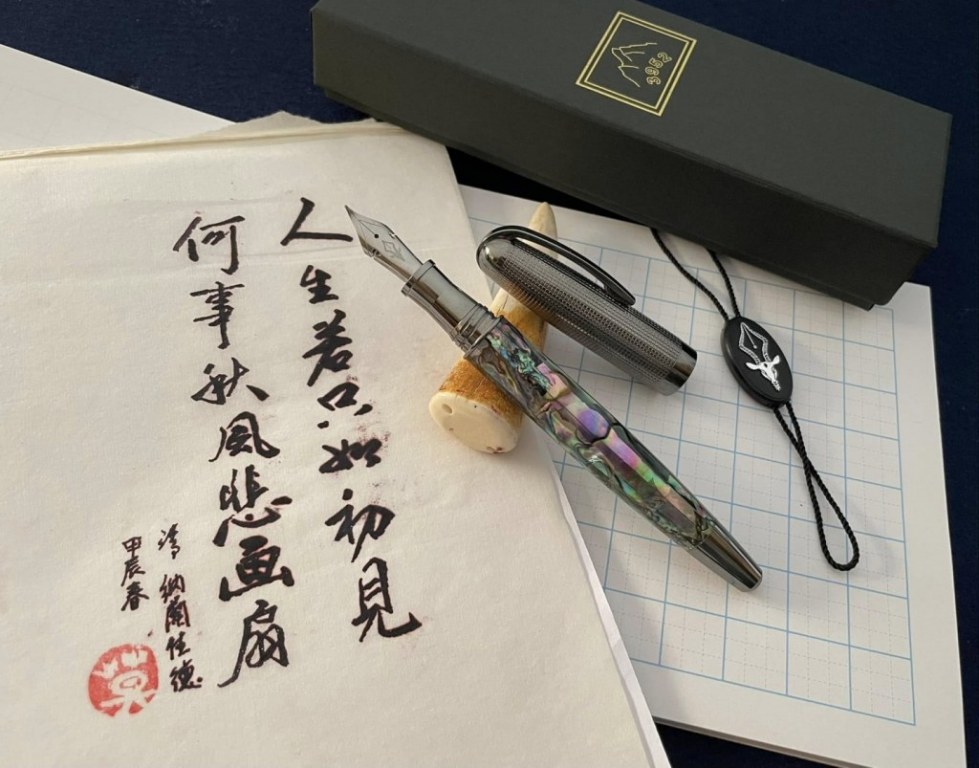 人生若只如初見
何事秋風悲画扇
清 納蘭性德
甲辰春